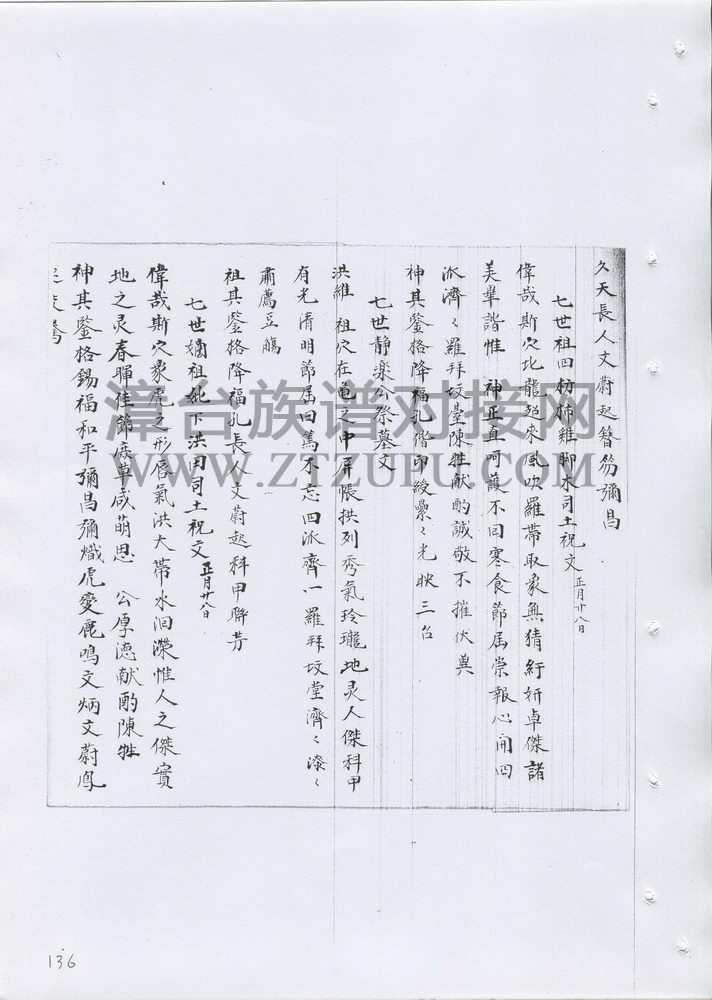 久天長人文蔚起簪笏彌昌
七世祖四枋柿雞脚水司土祝文 正月廿八日
偉哉斯穴比龍起來風吹羅帶取象無猜紆妍卓傑諸
美畢諧惟 神正直呵護不回寒食節屆崇報心開四
派濟〻羅拜坟臺陳牲献酌誠敬不摧伏兾
神其鍳格降福孔偕印綬纍〻光映三台
七世静楽公祭墓文
洪維 祖穴在亀之中屏帳拱列秀氣玲瓏地灵人傑科甲
有光清明節屆曰篤不忘四派齊一羅拜坟堂濟〻漆〻
肅薦豆觴
祖其鍳格降福孔長人文蔚起科甲聨芳
七世嫡祖妣下洪固司土祝文 正月廿八日
偉哉斯穴象虎之形唇氣洪大帶水洄瀠惟人之傑實
地之灵春暉佳節庶草咸萌思 公厚德献酌陳牲
神其鍳格錫福和平彌昌彌熾虎變鹿鳴文炳文蔚鳳
漳台族谱对接网
WWW.ZTZUPU.COM
136